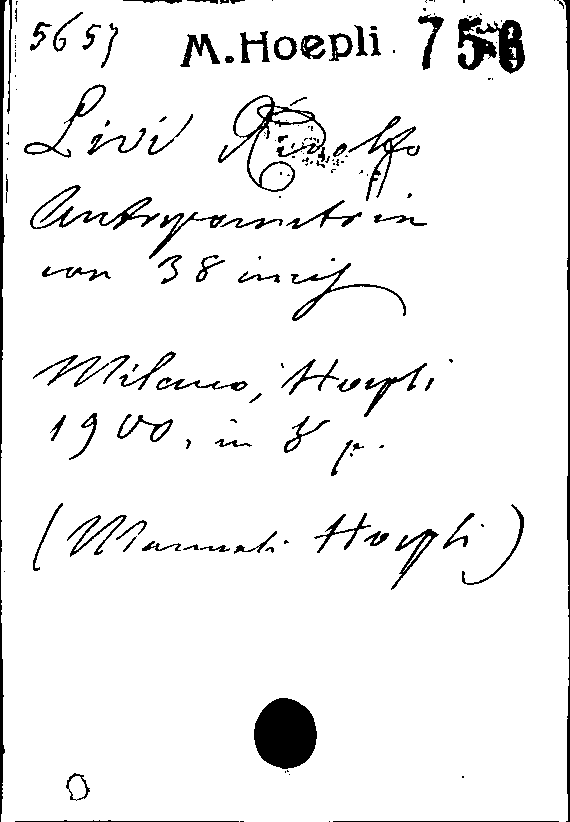 5657 M.Hoepli 756
Livi Ridolfo
Antropometria
con 38 incis
Milano, Hoepli
1900, in 8 p.
(Manuali Hoepli)